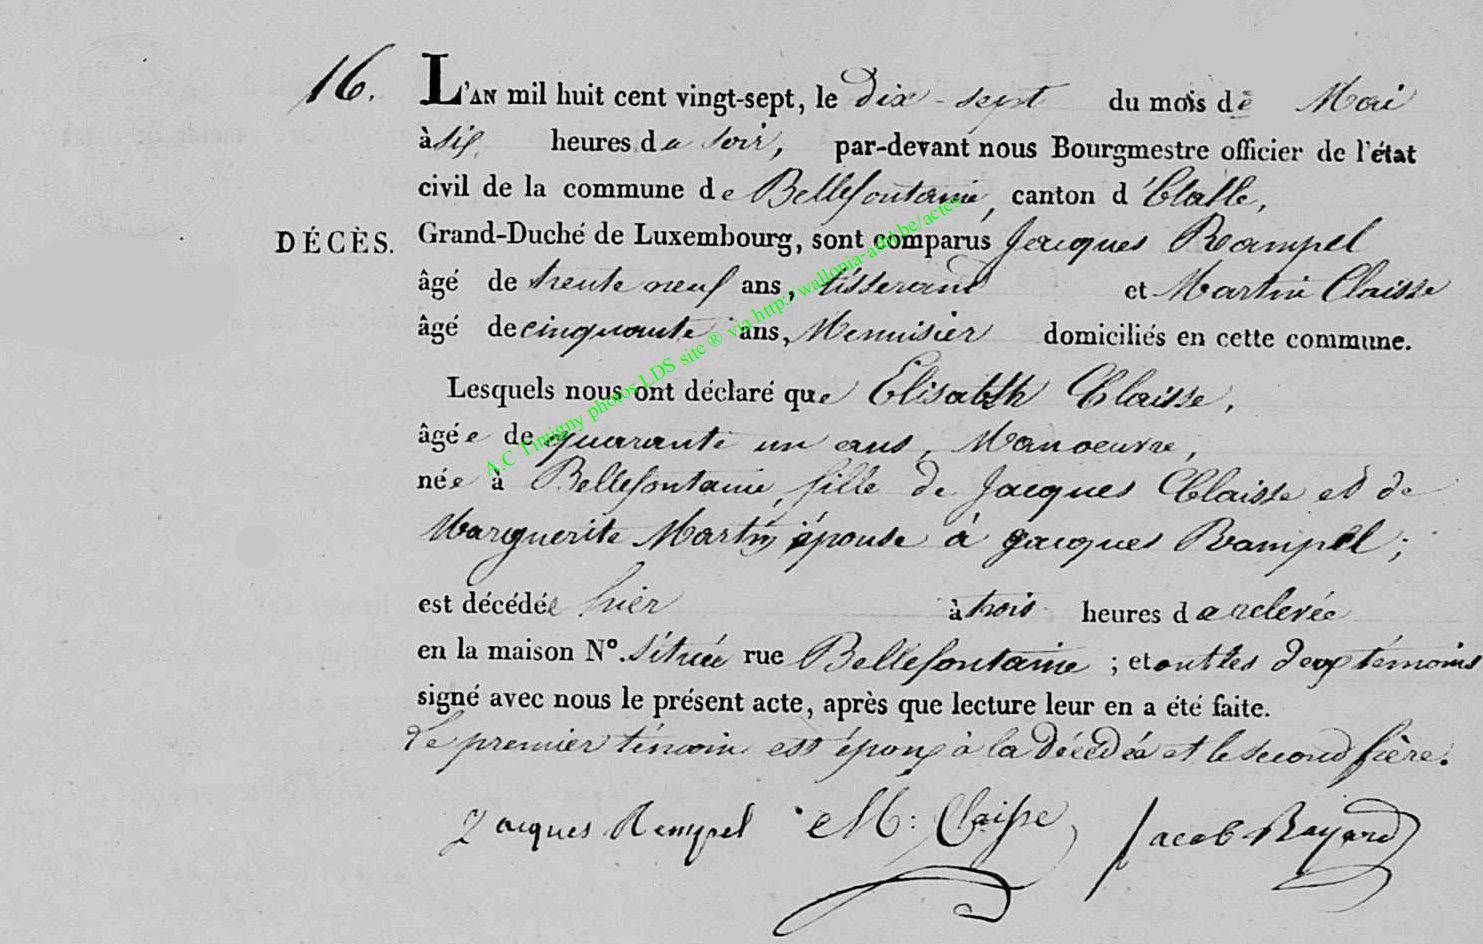 16. L'AN mil huit cent vingt-sept, le dix-sept du mois de Mai
à six heures du soir, par-devant nous Bourgmestre officier de l'état
civil de la commune de Bellefontaine, canton d'Etalle,
DÉCÈS. Grand-Duché de Luxembourg, sont comparus Jacques Rampel
âgé de trente neuf ans, tisserand et Martin Claisse
âgé de cinquante ans, Menuisier domiciliés en cette commune.
Lesquels nous ont déclaré que Elisabeth Claisse,
âgée de quarante un ans, Manoeuvre,
née à Bellefontaine, fille de Jacques Claisse et de
Marguerite Martin épouse à Jacques Rampel;
est décédée hier à trois heures de relevée
en la maison N°. située rue Bellefontaine; et ont les deux témoins
signé avec nous le présent acte, après que lecture leur en a été faite.
Le premier témoin est époux à la décédée et le second frère.
Jacques Rempel M: Claisse Jacob Bayard
A.C Tintigny photos LDS site ® via http://wallonia-asbl.be/actes